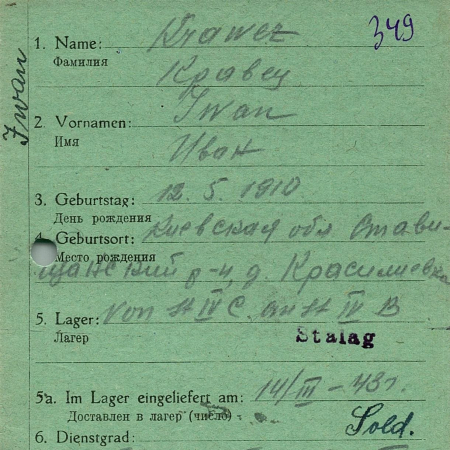 349
Iwan
1. Name: Krawez
Фамилия Кравец
2. Vornamen: Iwan
Имя Иван
3. Geburtstag: 12. 5. 1910
День рождения
4. Geburtsort: Киевская обл. Стави-
Место рождения щанский р-н, д. Красилиевка
5. Lager: von St IV C an St IV B
Лагер Stalag
5a. Im Lager eingeliefert am: 14/III – 43 г.
Доставлен в лагер (число)
6. Dienstgrad: Sold.